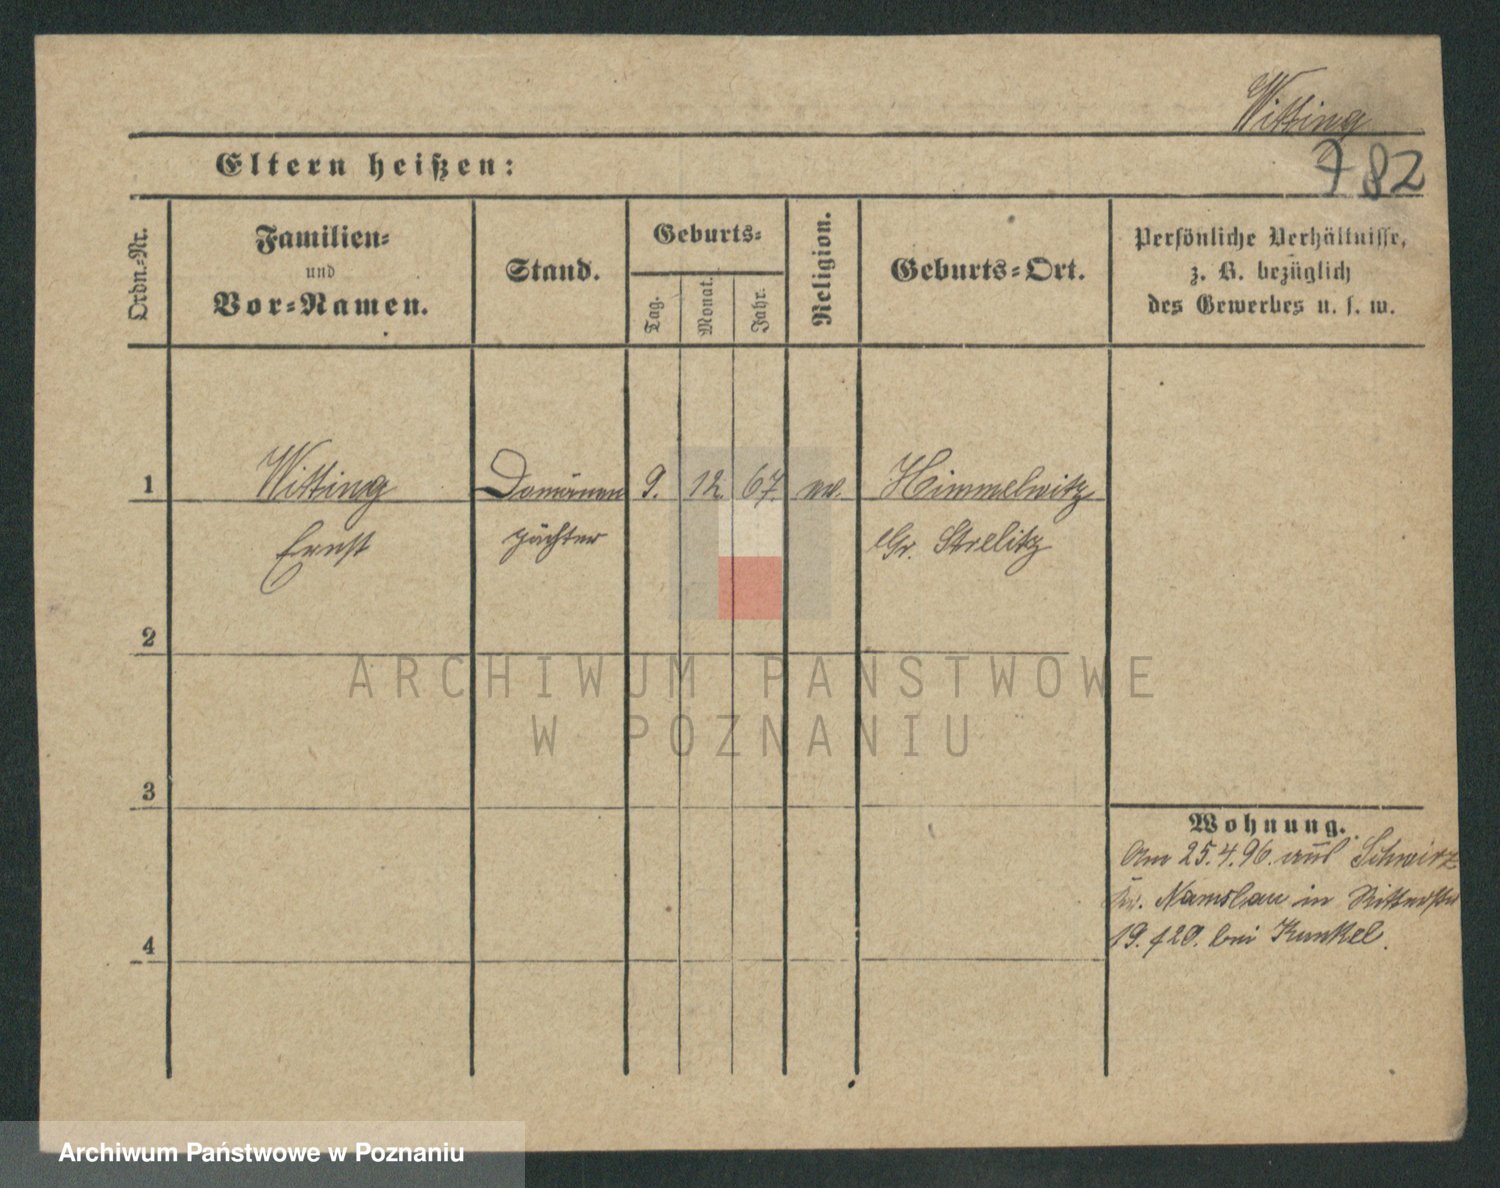 Witting
782
Eltern heißen:
Ordn.-Nr.
Familien-
und
Vor-Namen.
Stand.
Geburts-
Tag.
Monat.
Jahr.
Religion.
Geburts-Ort.
Persönliche Verhältnisse,
z. B. bezüglich
des Gewerbes u. s. w.
1
Witting
Domänen
9. 12. 67. ev.
Himmelwitz
Ernst
pächter
Gr. Strelitz
2
3
4
Wohnung.
Am 25.4.96. aus Schwirz
Kr. Namslau in Ritterstr
19. /20. bei Kunkel.
ARCHIWUM PAŃSTWOWE
W POZNANIU
Archiwum Państwowe w Poznaniu